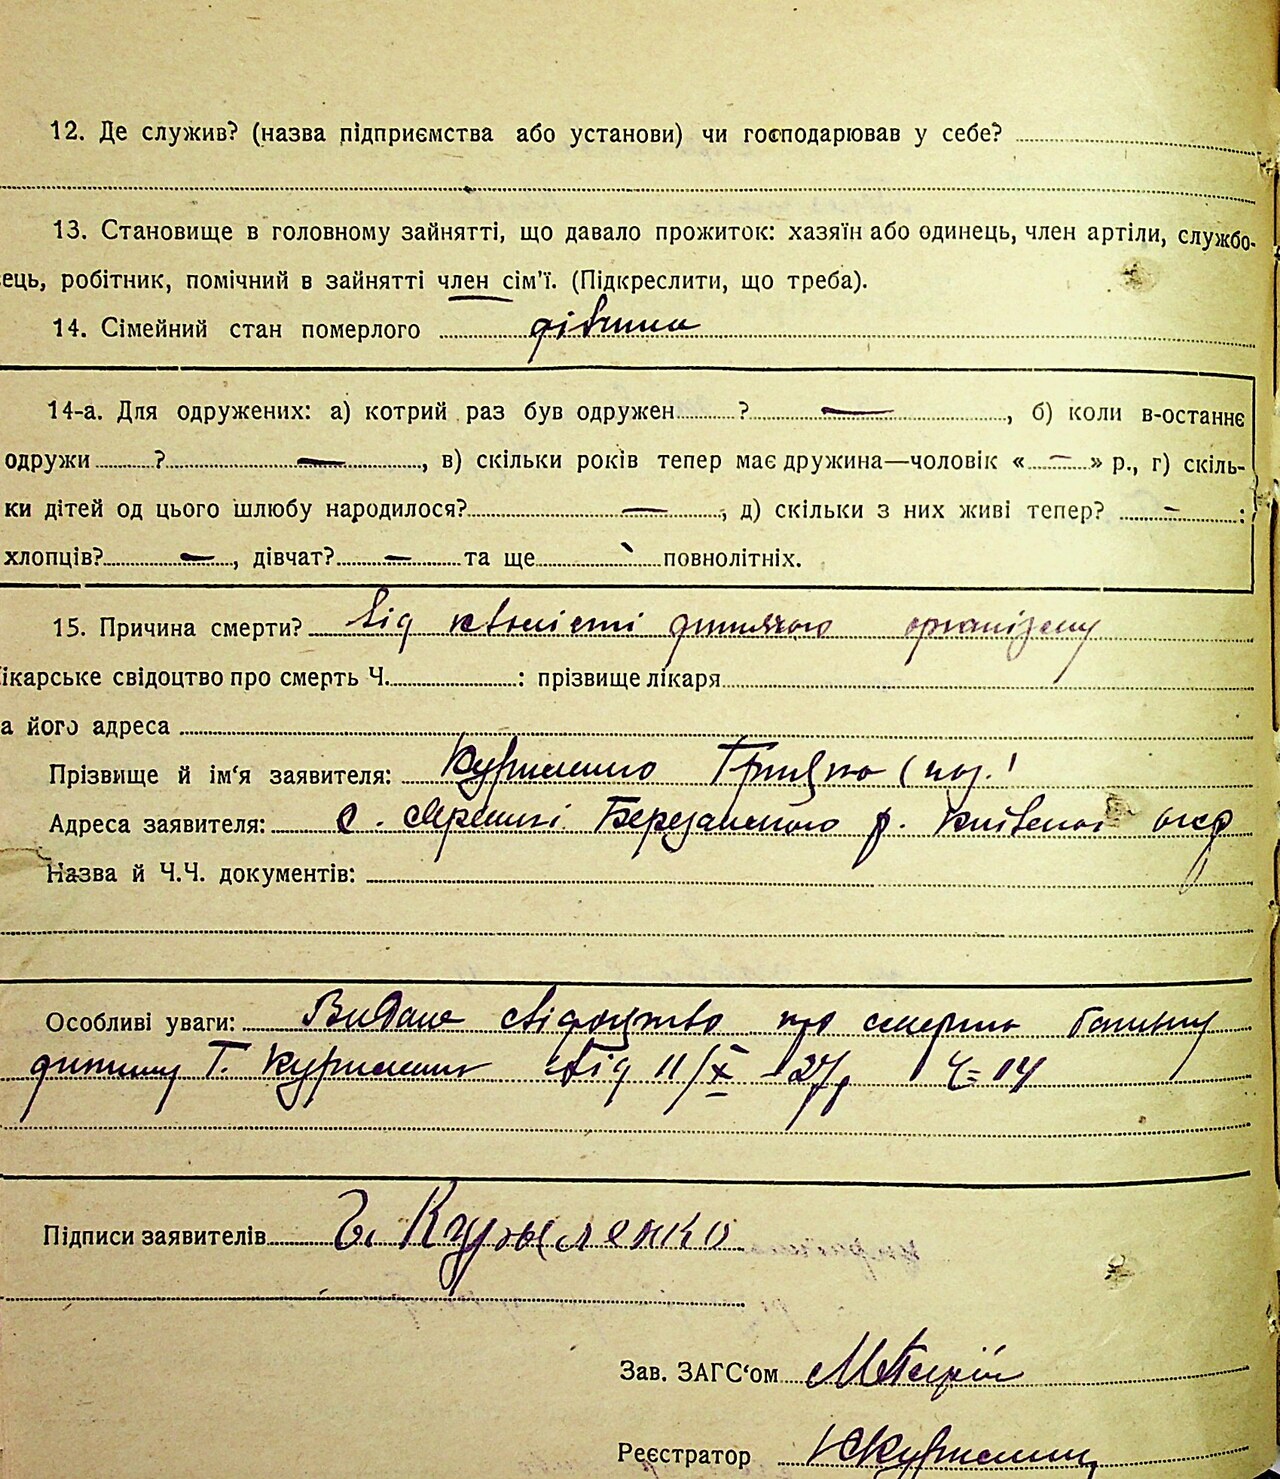 12. Де служив? (назва підприємства або установи) чи господарював у себе?
13. Становище в головному зайнятті, що давало прожиток: хазяїн або одинець, член артіли, службо-
ець, робітник, помічний в зайнятті член сім'ї. (Підкреслити, що треба).
14. Сімейний стан померлого дівчина
14-а. Для одружених: а) котрий раз був одружен ? —, б) коли в-останнє
одружи ? —, в) скільки років тепер має дружина—чоловік « — » р., г) скіль-
ки дітей од цього шлюбу народилося? —, д) скільки з них живі тепер? — :
хлопців? —, дівчат? — та ще повнолітніх.
15. Причина смерти? від кволісті дитячого організму
ікарське свідоцтво про смерть Ч. : прізвище лікаря
а його адреса
Прізвище й ім'я заявителя: Куриленко Грицько
Адреса заявителя: с. Ярешкі Березанського р. Київської окр
Назва й Ч.Ч. документів:
Особливі уваги: Видане свідоцтво про смерть батьку
дитини Г. Куриленку від 11/X -27р Ч= 14
Підписи заявителів Г. Курыленко
Зав. ЗАГС'ом
Реєстратор